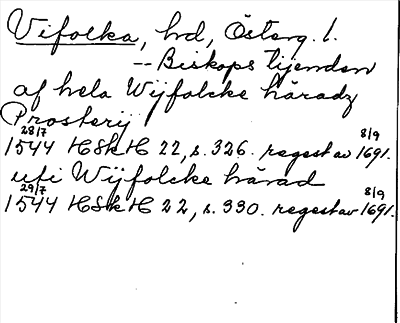 Vifolka, hd, Österg. l.
-- Biskops tijenden
af hela Wijfolcke häradz
Prosterij
28/7 8/9
1544 HSkH 22, s. 326. regest av 1691.
uti Wijfolcke härad
29/7 8/9
1544 HSkH 22, s. 330. regest av 1691.